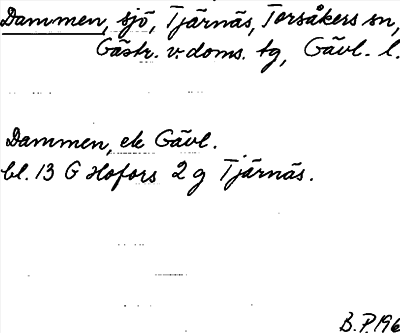 Dammen, sjö, Tjärnäs, Torsåkers sn,
Gästr. v. doms. tg, Gävl. l.
Dammen, ek Gävl.
bl. 13 G Hofors 2 g Tjärnäs.
B. P. 196